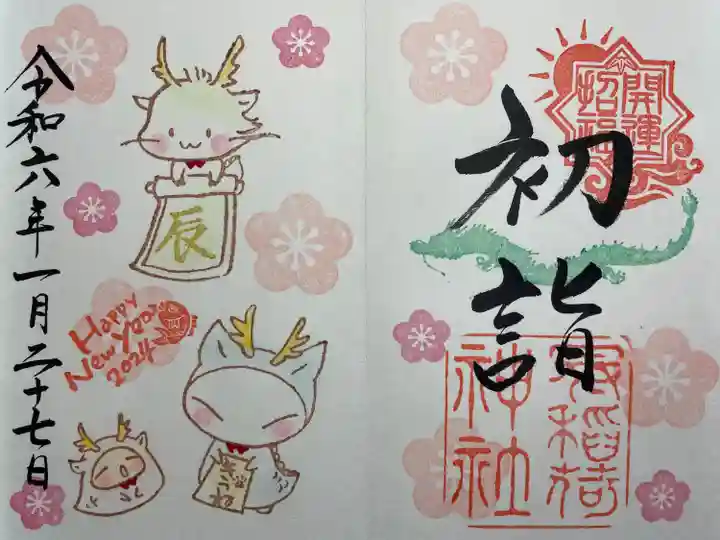 開運
招福
初詣
神社
辰
HAPPY
NEW YEAR
2024
令和六年一月二十七日